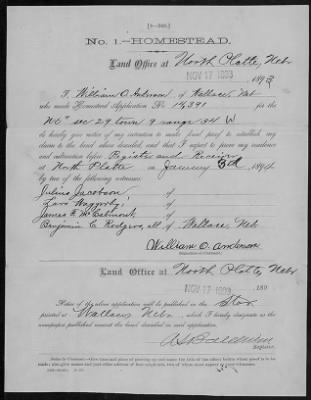 [4—348.]
No. 1.—HOMESTEAD.
Land Office at North Platte, Neb
NOV 17 1893, 1893
I, William O. Anderson, of Wallace, Neb
who made Homestead Application No. 14391 for the
sec 29 town 9 range 34 W
do hereby give notice of my intention to make final proof to establish my
claim to the land above described, and that I expect to prove my residence
and cultivation before Register and Receiver
at North Platte on January 5th, 1894
by two of the following witnesses:
Julius Jacobson, of
of
of
Benjamin C Rodgers, all of Wallace, Neb
William O. Anderson
(Signature of Claimant.)
Land Office at North Platte, Nebr
NOV 17 1893, 189
Notice of the above application will be published in the Star
printed at Wallace, Nebr, which I hereby designate as the
newspaper published nearest the land described in said application.
Register.